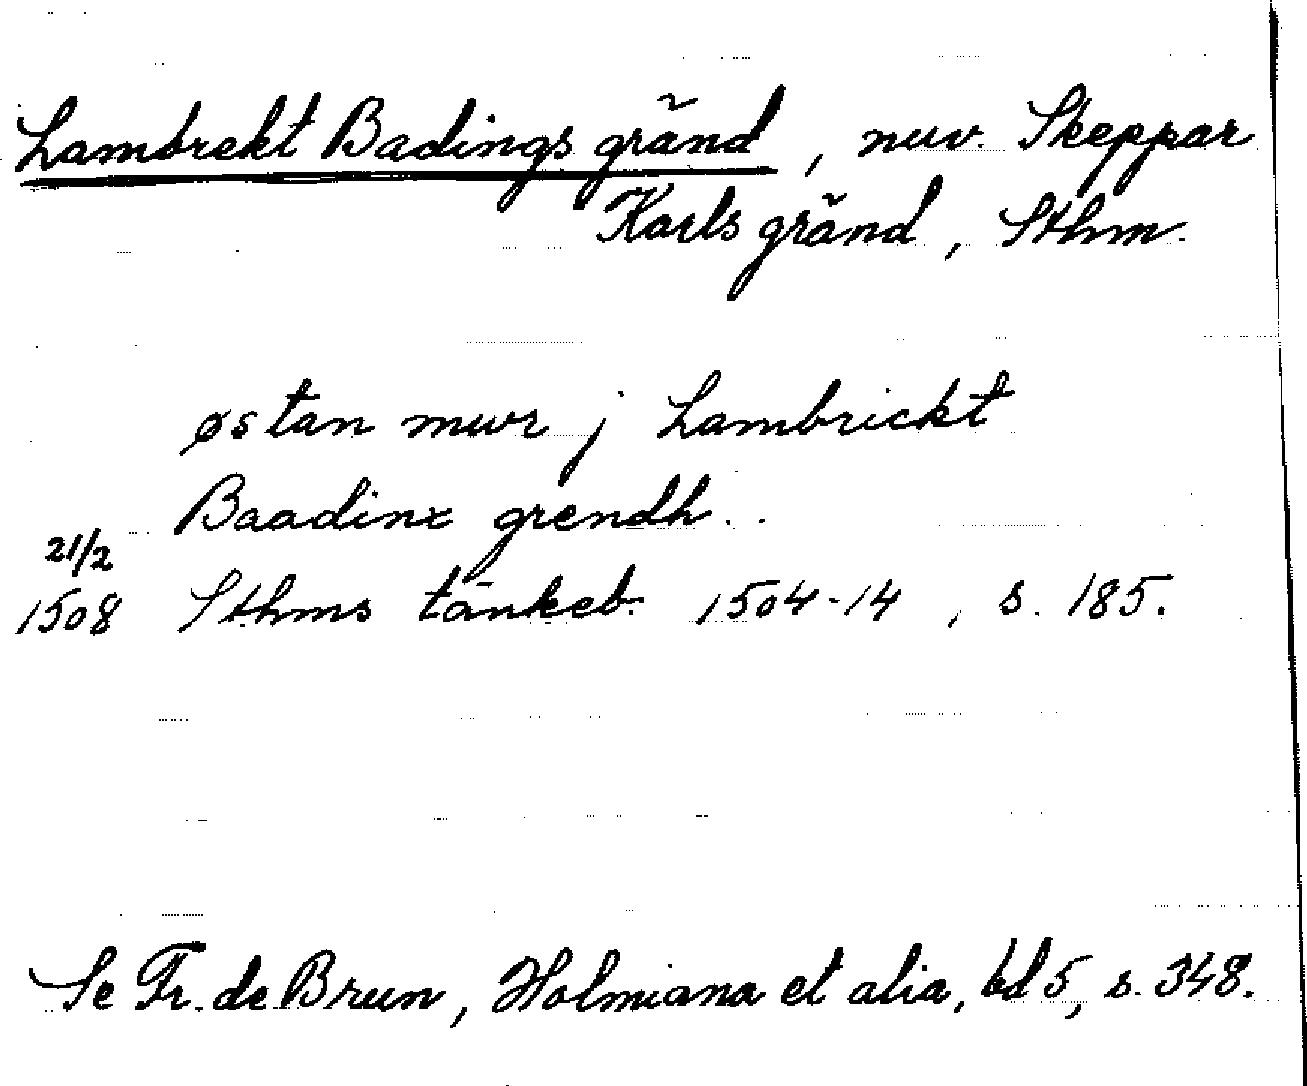 Lambrekt Badings gränd, nuv. Skeppar
Karls gränd, Sthm.
østan mwr j Lambrickt
Baadinx grendh..
21/2
1508 Sthms tänkeb. 1504-14, s. 185.
Se Fr. de Brun, Holmiana et alia, bd 5, s. 348.